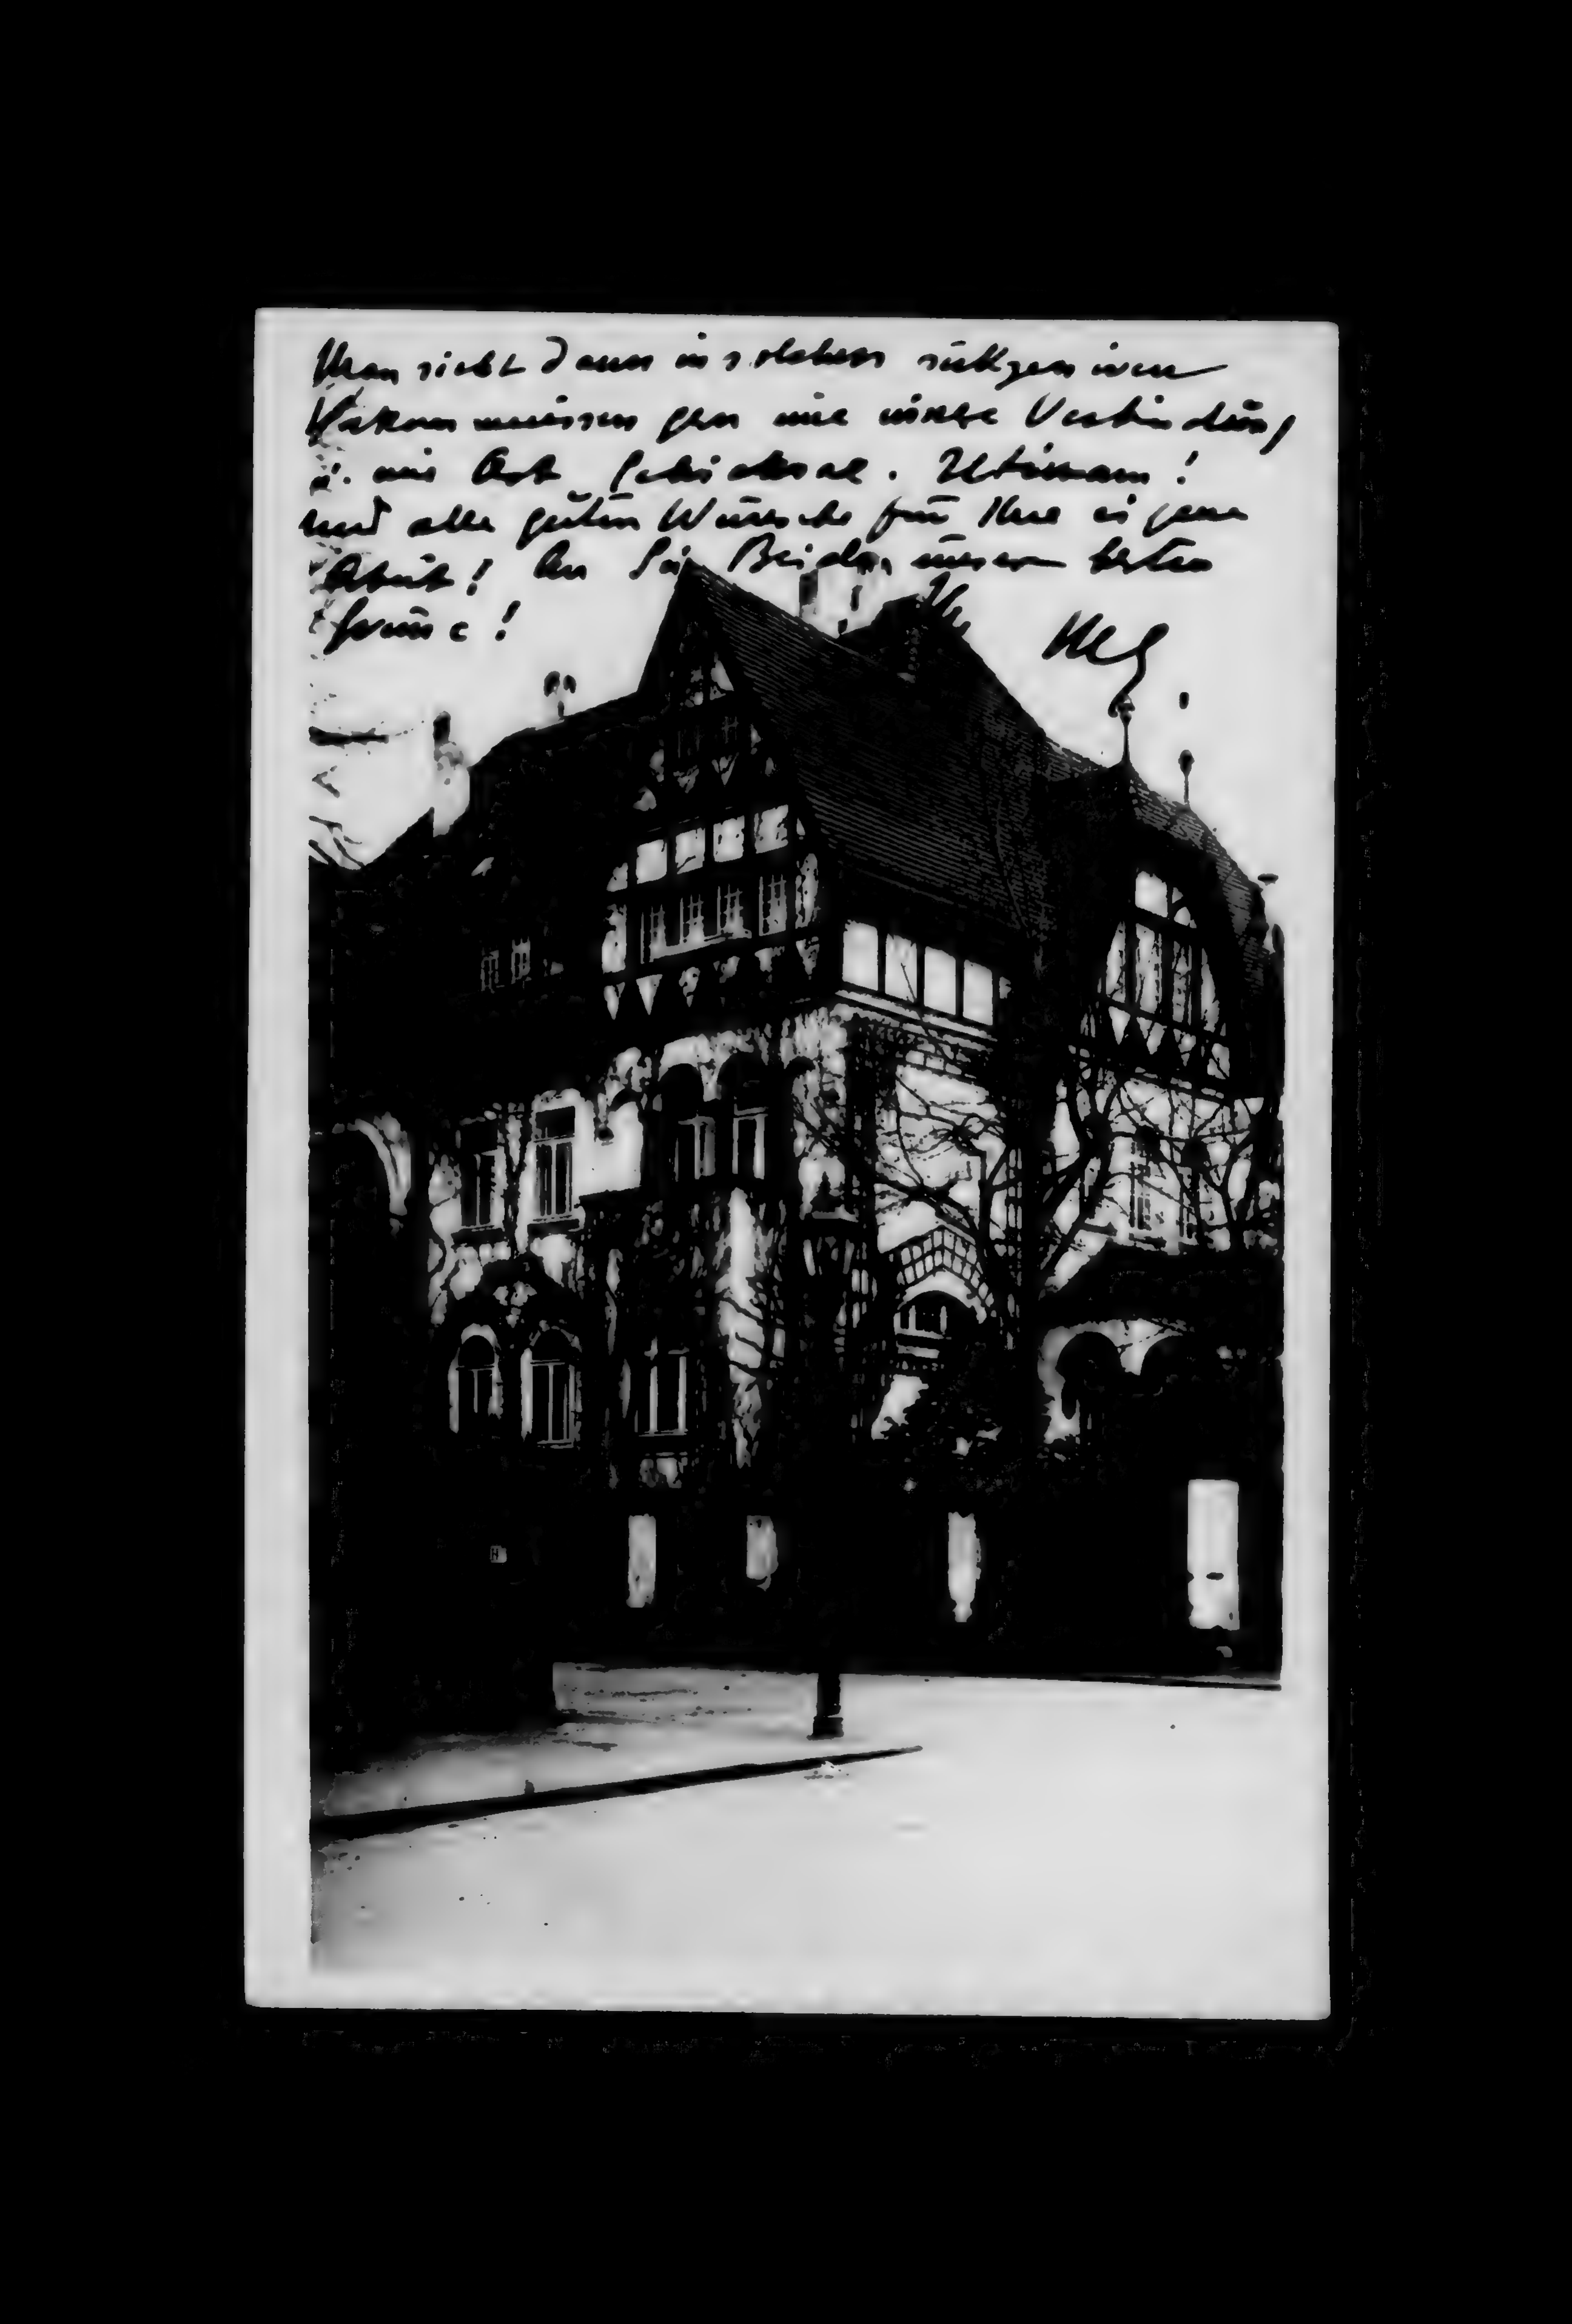 Man sieht dann in solchen
Vorkommnissen gern eine innere Verbindung
u. eine Art Schicksal. Utinam!
Und alle guten Wünsche für Ihre eigene
Arbeit! An Sie Beide, unsere besten
Grüsse!
Ihr